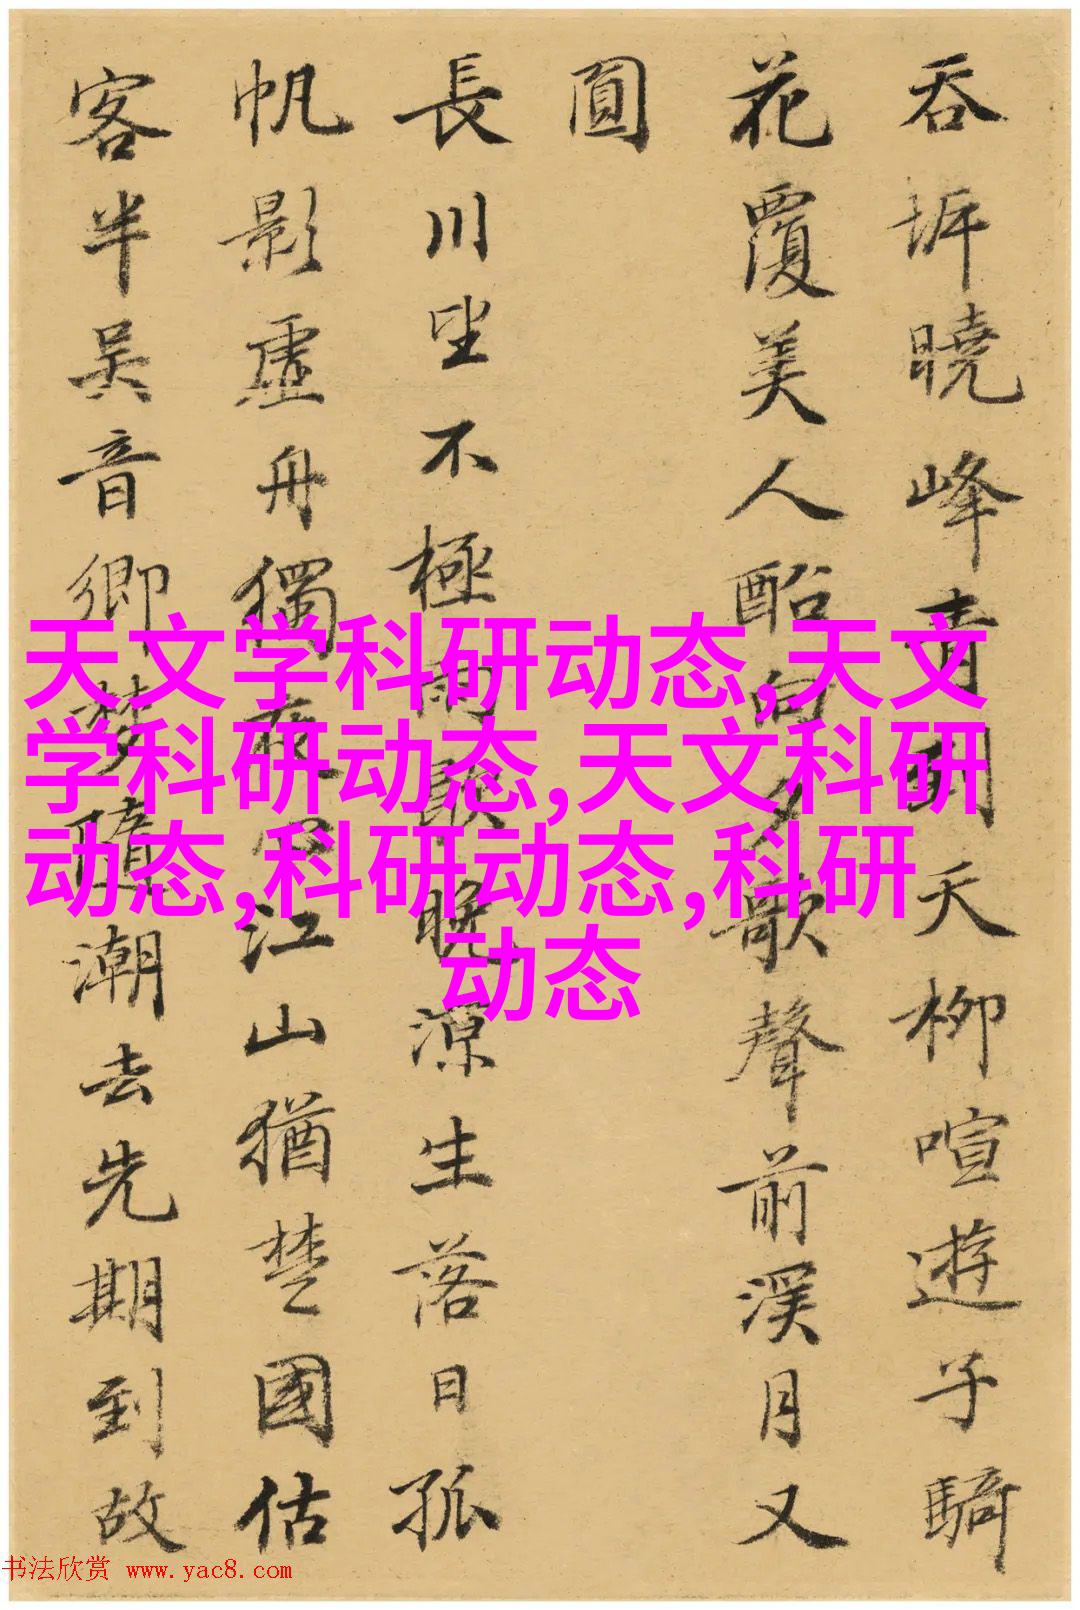 吞坼曉峰青朗天柳喧遊子騎
花覆美人酩向夕歌聲前溪月又
圓
長川坐不極雨歇晚源生落日孤
帆影虛舟獨夜江山猶楚國估
客半吳音鄉夢隨潮去先期到故
天文学科研动态,天文
学科研动态,天文科研
动态,科研动态,科研
动态
书法欣赏 www.yac8.com